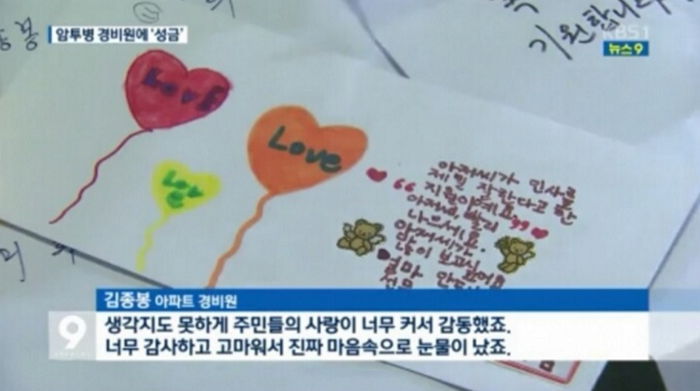 암투병 경비원에 '성금'
기원합니다
KBS1
뉴스9
Love
Love
Love
아저씨가 인사를
제일 잘한다고 한
지원이예요.
아저씨, 빨리
나으세요.
아저씨가
많이 보고싶어요
엄마
9
김종봉 아파트 경비원
생각지도 못하게 주민들의 사랑이 너무 커서 감동했죠.
너무 감사하고 고마워서 진짜 마음속으로 눈물이 났죠.